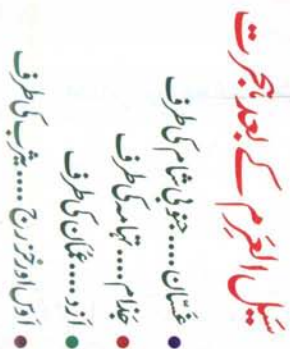 سَیل العَرِم کے بعد ہجرت
غسّان .... جنوبی شام کی طرف
جُذام .... تہامہ کی طرف
اَزد .... عُمان کی طرف
اَوس اور خزرج .... یثرب کی طرف